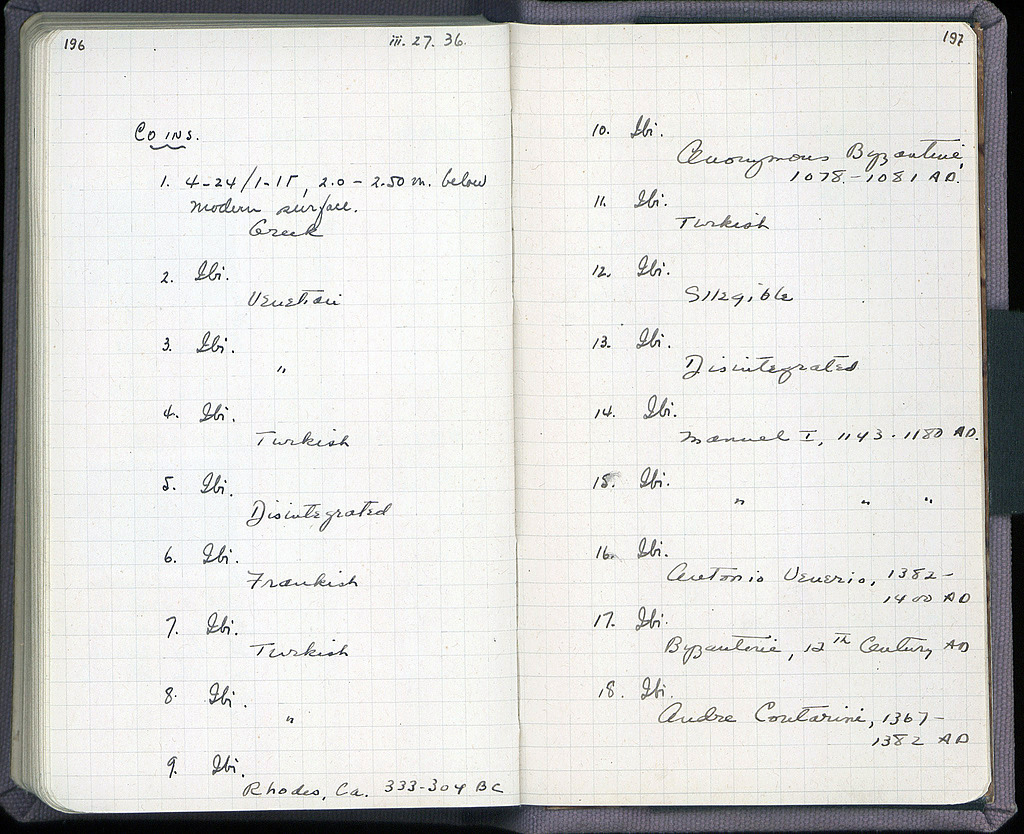 196
iii. 27. 36.
COINS.
1. 4-24/1-15, 2.0 - 2.50 m. below
modern surface.
Greek
2. Ibi.
Venetian
3. Ibi.
"
4. Ibi.
Turkish
5. Ibi.
Disintegrated
6. Ibi.
Frankish
7. Ibi.
Turkish
8. Ibi.
"
9. Ibi.
Rhodes, Ca. 333-304 BC
197
10. Ibi.
Anonymous Byzantine,
1078-1081 AD.
11. Ibi.
Turkish
12. Ibi.
Illegible
13. Ibi.
Disintegrated
14. Ibi.
Manuel I, 1143-1180 AD.
15. Ibi.
" " "
16. Ibi.
Antonio Venerio, 1382-
1400 AD
17. Ibi.
Byzantine, 12th Century AD
18. Ibi.
Andre Contarini, 1367-
1382 AD